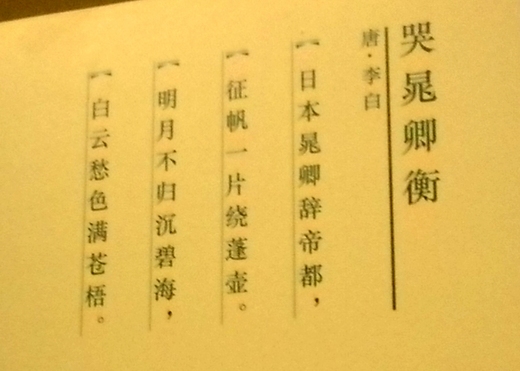 哭晁卿衡
唐·李白
日本晁卿辞帝都，
征帆一片绕蓬壶。
明月不归沉碧海，
白云愁色满苍梧。